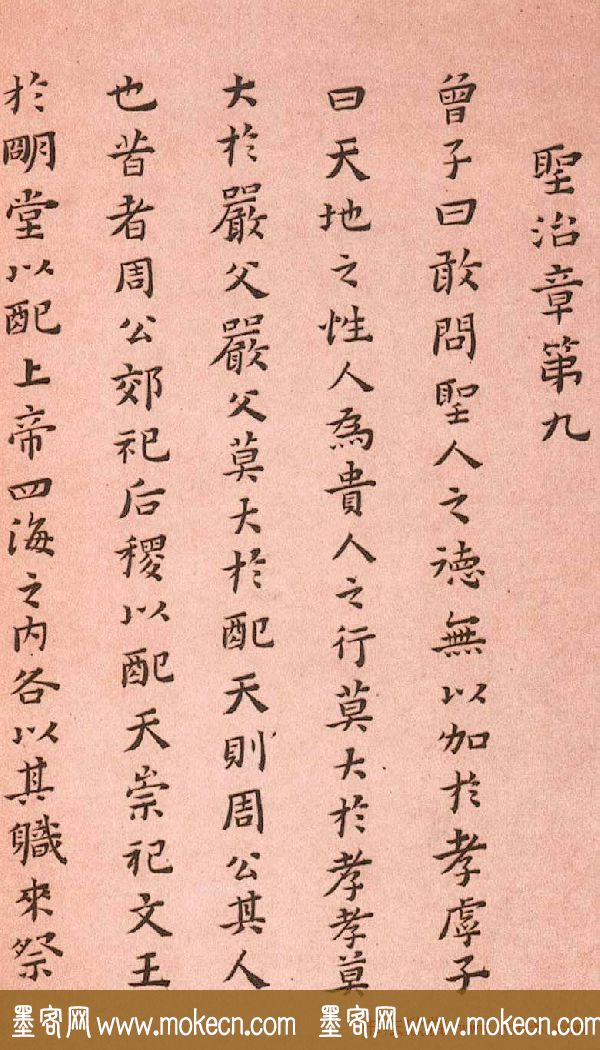 聖治章第九
曾子曰敢問聖人之徳無以加於孝虖子
曰天地之性人為貴人之行莫大於孝孝莫
大於嚴父嚴父莫大於配天則周公其人
也昔者周公郊祀后稷以配天崇祀文王
於朙堂以配上帝四海之内各以其職来祭
墨客网 www.mokecn.com 墨客网 www.mokecn.com